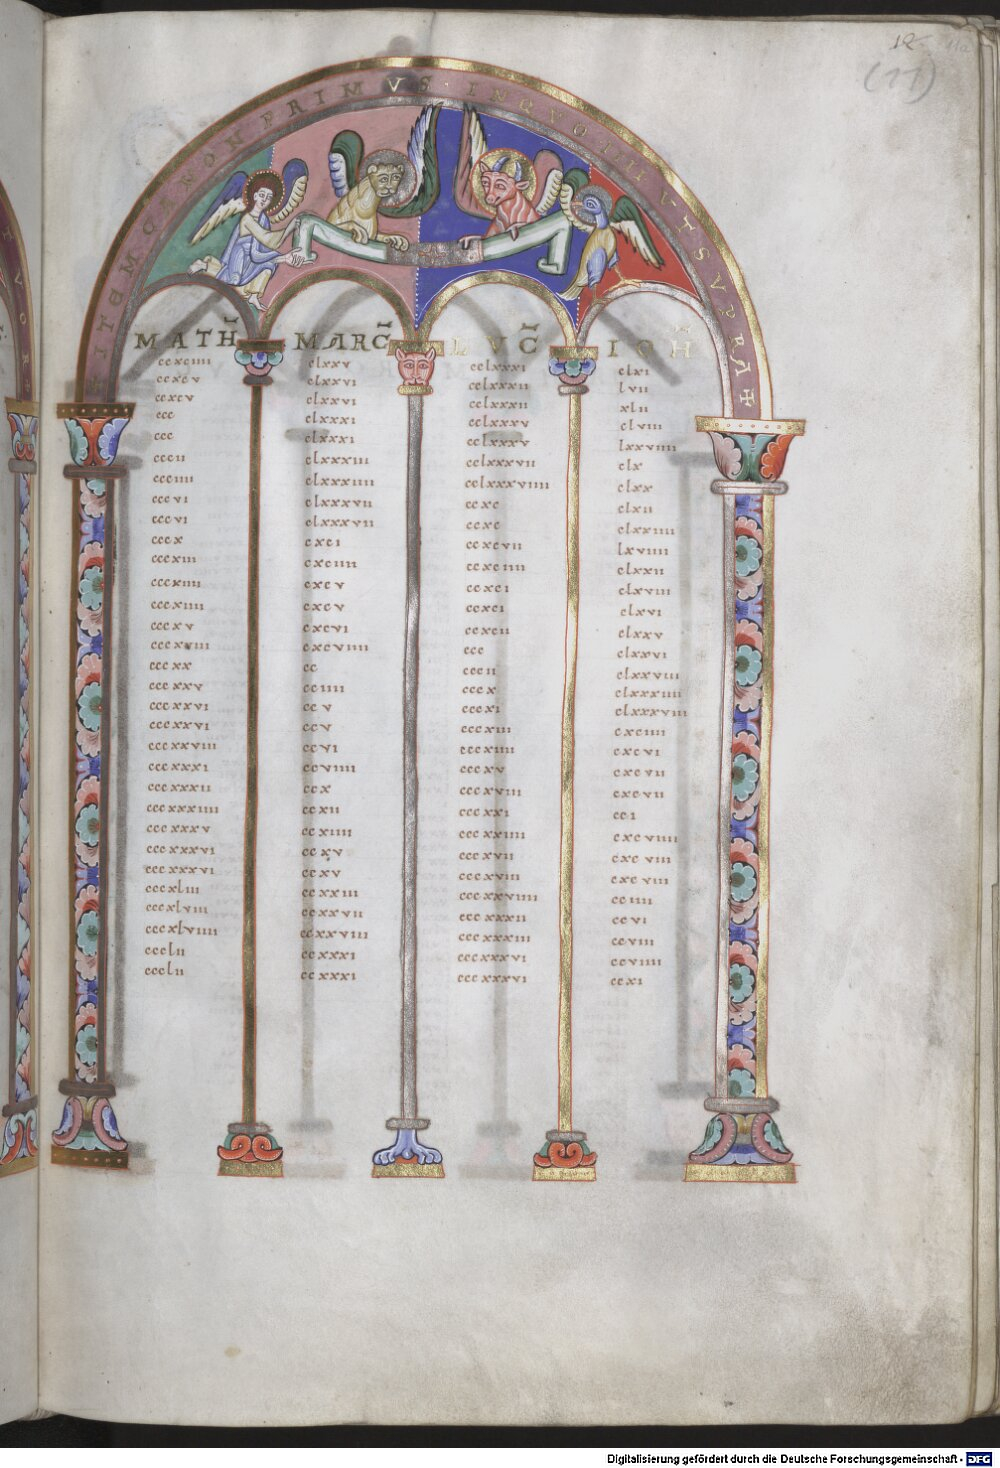 12 11a
(11)
ITEM CANON PRIMVS IN QVO IIII VT SVPRA
MATH MARC LVC IOH
ccxciiii clxxv cclxxxi clxi
ccxcv clxxvi cclxxxii lvii
ccxcv clxxvi cclxxxii xlii
ccc clxxxi cclxxxv clviii
ccc clxxxi cclxxxv lxxviiii
cccii clxxxiii cclxxxvii clx
ccciiii clxxxiiii cclxxxviiii clxx
cccvi clxxxvii ccxc clxii
cccvi clxxxvii ccxc clxxiiii
cccx cxci ccxcvii lxviiii
cccxiii cxciiii ccxciiii clxxii
cccxiiii cxcv ccxci clxviii
cccxiiii cxcv ccxci clxvi
cccxv cxcvi ccxcii clxxv
cccxviiii cxcviiii ccc clxxvi
cccxx cc cccii clxxviii
cccxxv cciiii cccx clxxxiiii
cccxxvi ccv cccxi clxxxviii
cccxxvi ccv cccxiii cxciiii
cccxxviiii ccvi cccxiiii cxcvi
cccxxxi ccviiii cccxv cxcvii
cccxxxii ccx cccxviii cxcvii
cccxxxiiii ccxii cccxxi cci
cccxxxv ccxiiii cccxxiiii cxcviiii
cccxxxvi ccxv cccxvii cxcviii
cccxxxvi ccxv cccxviii cxcviii
cccxliii ccxxiii cccxxviiii cciiii
cccxlviii ccxxvii cccxxxii ccvi
cccxlviiii ccxxviii cccxxxiii ccviii
ccclii ccxxxi cccxxxvi ccviiii
ccclii ccxxxi cccxxxvi ccxi
Digitalisierung gefördert durch die Deutsche Forschungsgemeinschaft - DFG